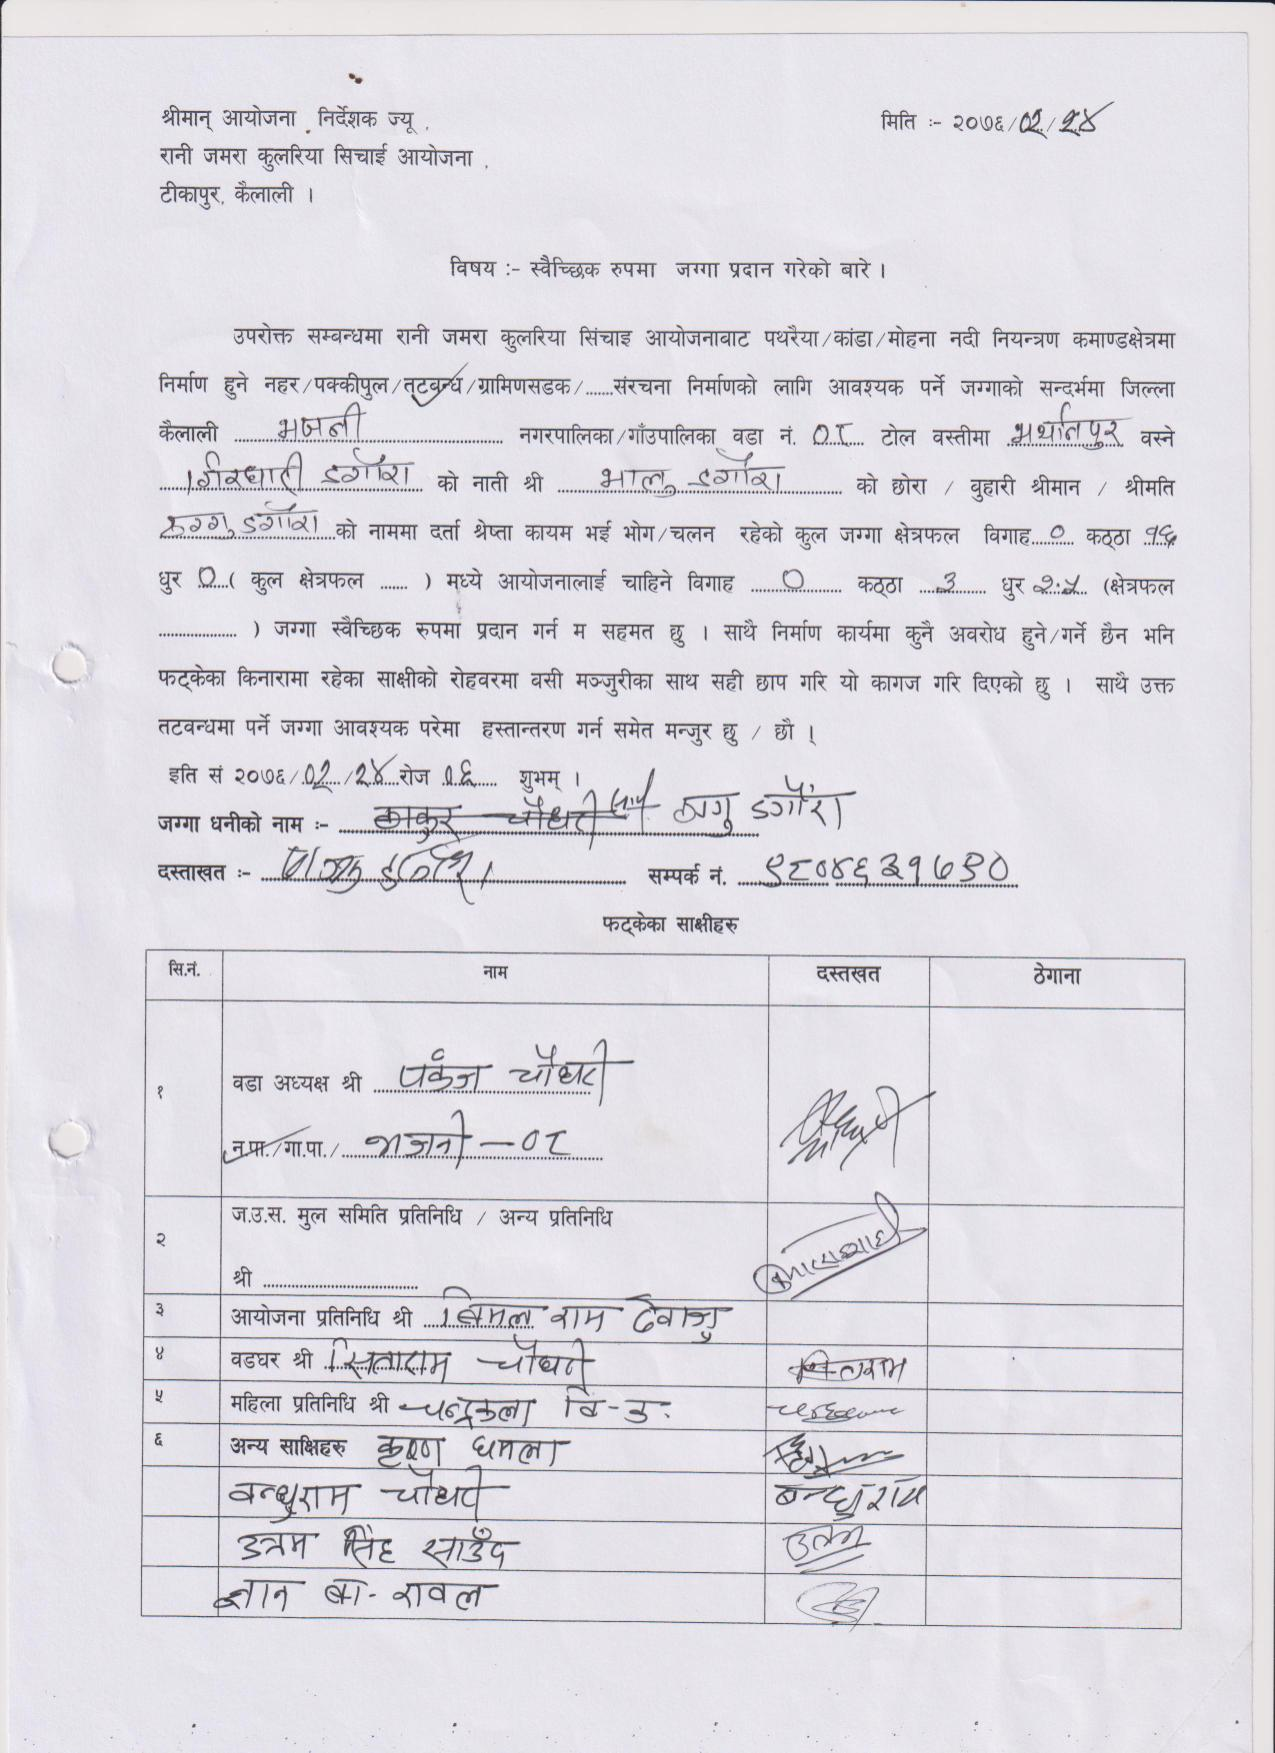 श्रीमान् आयोजना निर्देशक ज्यू , मिति :- २०७६/०२/२४
रानी जमरा कुलरिया सिचाई आयोजना ,
टीकापुर, कैलाली ।
विषय :- स्वैच्छिक रुपमा जग्गा प्रदान गरेको बारे ।
उपरोक्त सम्बन्धमा रानी जमरा कुलरिया सिंचाइ आयोजनाबाट पथरैया/कांडा/मोहना नदी नियन्त्रण कमाण्डक्षेत्रमा
निर्माण हुने नहर/पक्कीपुल/तटबन्ध/ग्रामिणसडक/.......संरचना निर्माणको लागि आवश्यक पर्ने जग्गाको सन्दर्भमा जिल्ला
कैलाली भजनी नगरपालिका/गाँउपालिका वडा नं. ०८ टोल वस्तीमा वस्ने
डगौरा को नाती श्री भालु डगौरा को छोरा / वुहारी श्रीमान / श्रीमति
डगौरा को नाममा दर्ता श्रेष्ता कायम भई भोग/चलन रहेको कुल जग्गा क्षेत्रफल विगाह ० कठ्ठा १६
धुर ० ( कुल क्षेत्रफल ...... ) मध्ये आयोजनालाई चाहिने विगाह ० कठ्ठा ३ धुर २.५ (क्षेत्रफल
.................... ) जग्गा स्वैच्छिक रुपमा प्रदान गर्न म सहमत छु । साथै निर्माण कार्यमा कुनै अवरोध हुने/गर्ने छैन भनि
फट्केका किनारामा रहेका साक्षीको रोहवरमा वसी मञ्जुरीका साथ सही छाप गरि यो कागज गरि दिएको छु । साथै उक्त
तटवन्धमा पर्ने जग्गा आवश्यक परेमा हस्तान्तरण गर्न समेत मन्जुर छु / छौ ।
इति सं २०७६/०२/२४ रोज ०६ शुभम् ।
जग्गा धनीको नाम :- ठाकुर चौधरी ठागु डगौरा
दस्ताखत :- सम्पर्क नं. ९८०४६३१७९०
फट्केका साक्षीहरु
सि.नं. नाम दस्तखत ठेगाना
१ वडा अध्यक्ष श्री पंकज चौधरी
न.पा./गा.पा./ भजनी - ०८
२ ज.उ.स. मुल समिति प्रतिनिधि / अन्य प्रतिनिधि
श्री ..................................
३ आयोजना प्रतिनिधि श्री बिमल राम देवाजु
४ वडघर श्री सिताराम चौधरी सिताराम
५ महिला प्रतिनिधि श्री चन्द्रकला वि-क.
६ अन्य साक्षिहरु कृष्ण धमला
बन्धुराम चौधरी बन्धुराम
उत्तम सिंह साउँद उत्तम
ज्ञान ब- रावल